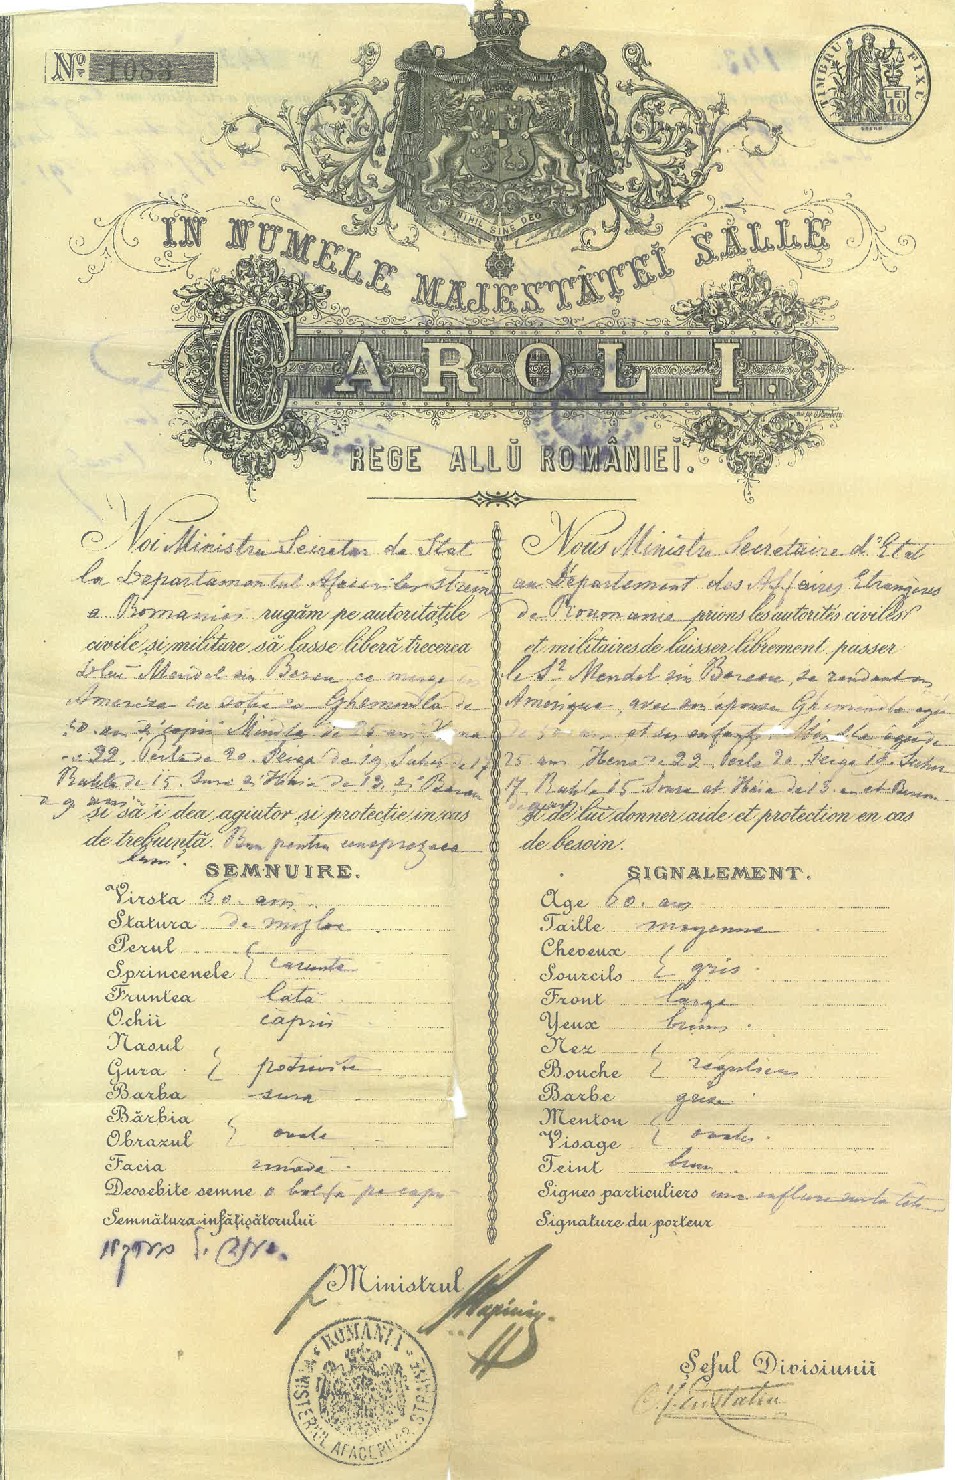 Nº 1083
TIMBRU FIXE
LEI 10
NIHIL SINE DEO
IN NUMELE MAJESTĂŢEĬ SALLE
CAROL I.
REGE ALLŬ ROMÂNIEĬ.
Noi Ministru Secretar de Stat
la Departamentul Afacerilor Străin
a Romaniei rugăm pe autorităţile
civile şi militare să lasse liberă trecerea
Mendel sin Bercu ce merge
America cu sotia sa Ghemendla de
50 ani şi copii Mindla de 25 ani
22, Perla de 20. Feiga de 19 de 17
Ruhla de 15. Sura si Haia de 13, si
a 9 ani
şi să i dea agiutor şi protecţie in cas
de trebuinţă. Bun pentru unsprezece
luni.
SEMNUIRE.
Virsta 60. ani
Statura de mijloc
Perul
Sprincenele } carunte
Fruntea lată
Ochii căprii
Nasul
Gura } potrivite
Barba sura
Bărbia
Obrazul } ovale
Facia smadă
Deosebite semne o bolfă pe cap
Semnătura infăţişătorului
Nous Ministre Secrétaire d'Etat
au Département des Affaires Etrangères
de Roumanie prions les autorités civiles
et militaires de laisser librement passer
le Sr Mendel sin Bercou, se rendant en
Amérique, avec son épouse Ghemendla agée
de 50 ans et ses enfants Mindla agée de
25 ans de 22 Perla 20, Feiga 19
17 Ruhla 15 Soura et Haïa de 13 ans et
et de lui donner aide et protection en cas
de besoin.
SIGNALEMENT.
Age 60. ans
Taille moyenne
Cheveux
Sourcils } gris
Front large
Yeux bruns
Nez
Bouche } réguliers
Barbe grise
Menton
Visage } ovales
Teint brun
Signes particuliers une enflure sur la tête
Signature du porteur
Ministrul
ROMANIA
MINISTERUL AFACERILOR STRAINE
Şeful Divisiunii